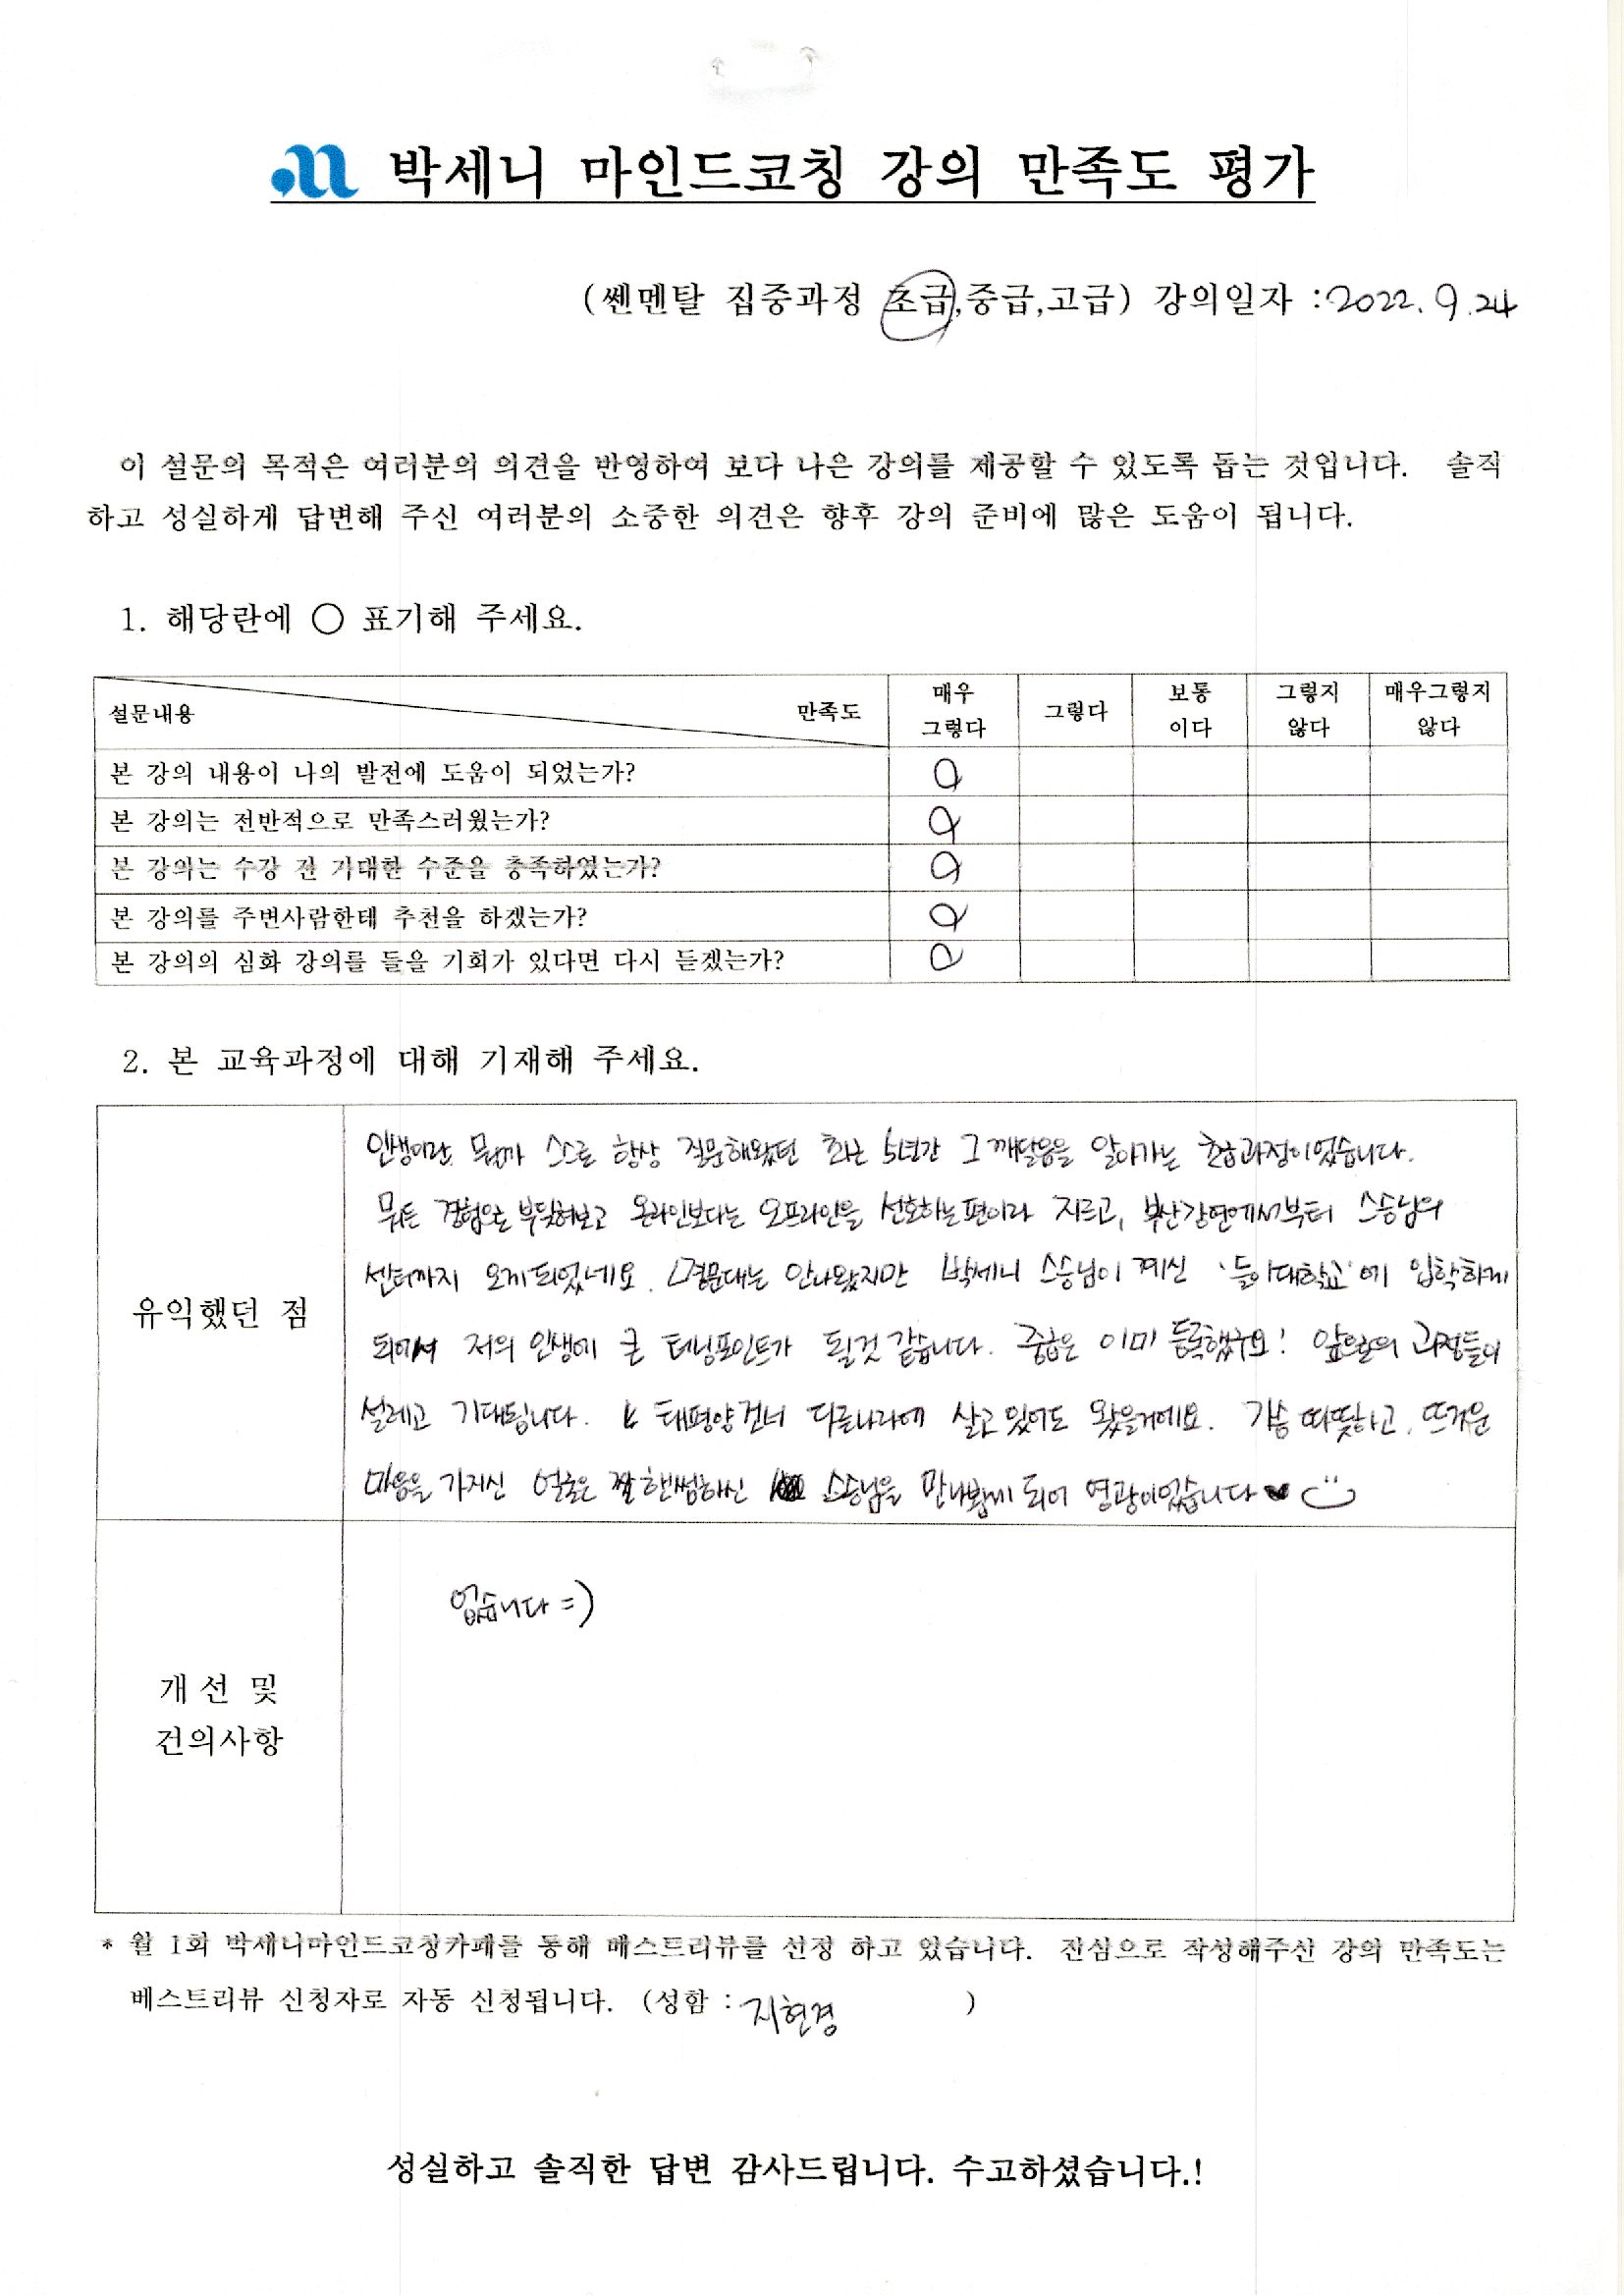 박세니 마인드코칭 강의 만족도 평가
(쎈멘탈 집중과정 초급,중급,고급) 강의일자 :2022. 9. 24
이 설문의 목적은 여러분의 의견을 반영하여 보다 나은 강의를 제공할 수 있도록 돕는 것입니다. 솔직
하고 성실하게 답변해 주신 여러분의 소중한 의견은 향후 강의 준비에 많은 도움이 됩니다.
1. 해당란에 ○ 표기해 주세요.
설문내용 만족도 매우 그렇다 그렇다 보통 이다 그렇지 않다 매우그렇지 않다
본 강의 내용이 나의 발전에 도움이 되었는가? O
본 강의는 전반적으로 만족스러웠는가? O
본 강의는 수강 전 기대한 수준을 충족하였는가? O
본 강의를 주변사람한테 추천을 하겠는가? O
본 강의의 심화 강의를 들을 기회가 있다면 다시 듣겠는가? O
2. 본 교육과정에 대해 기재해 주세요.
유익했던 점
인생이란 뭘까 스스로 항상 질문해왔던 최근 5년간 그 깨달음을 알아가는 초급과정이었습니다.
뭐든 경험으로 부딪혀보고 온라인보다는 오프라인을 선호하는편이라 지르고, 부산강연에서부터 스승님의
센터까지 오게되었네요. 명문대는 안나왔지만 박세니 스승님이 계신 '동아대학교'에 입학하게
되어서 저의 인생에 큰 터닝포인트가 될것 같습니다. 중급은 이미 등록했구요! 앞으로의 과정들이
설레고 기대됩니다. 태평양건너 다른나라에 살고있어도 왔을거에요. 가슴 따뜻하고, 뜨거운
마음을 가지신 얼굴은 짱 핸썸하신 스승님을 만나뵙게 되어 영광이었습니다 ♥
개선 및
건의사항
없습니다 =)
* 월 1회 박세니마인드코칭카페를 통해 베스트리뷰를 선정 하고 있습니다. 진심으로 작성해주신 강의 만족도는
베스트리뷰 신청자로 자동 신청됩니다. (성함 : 지현경 )
성실하고 솔직한 답변 감사드립니다. 수고하셨습니다.!